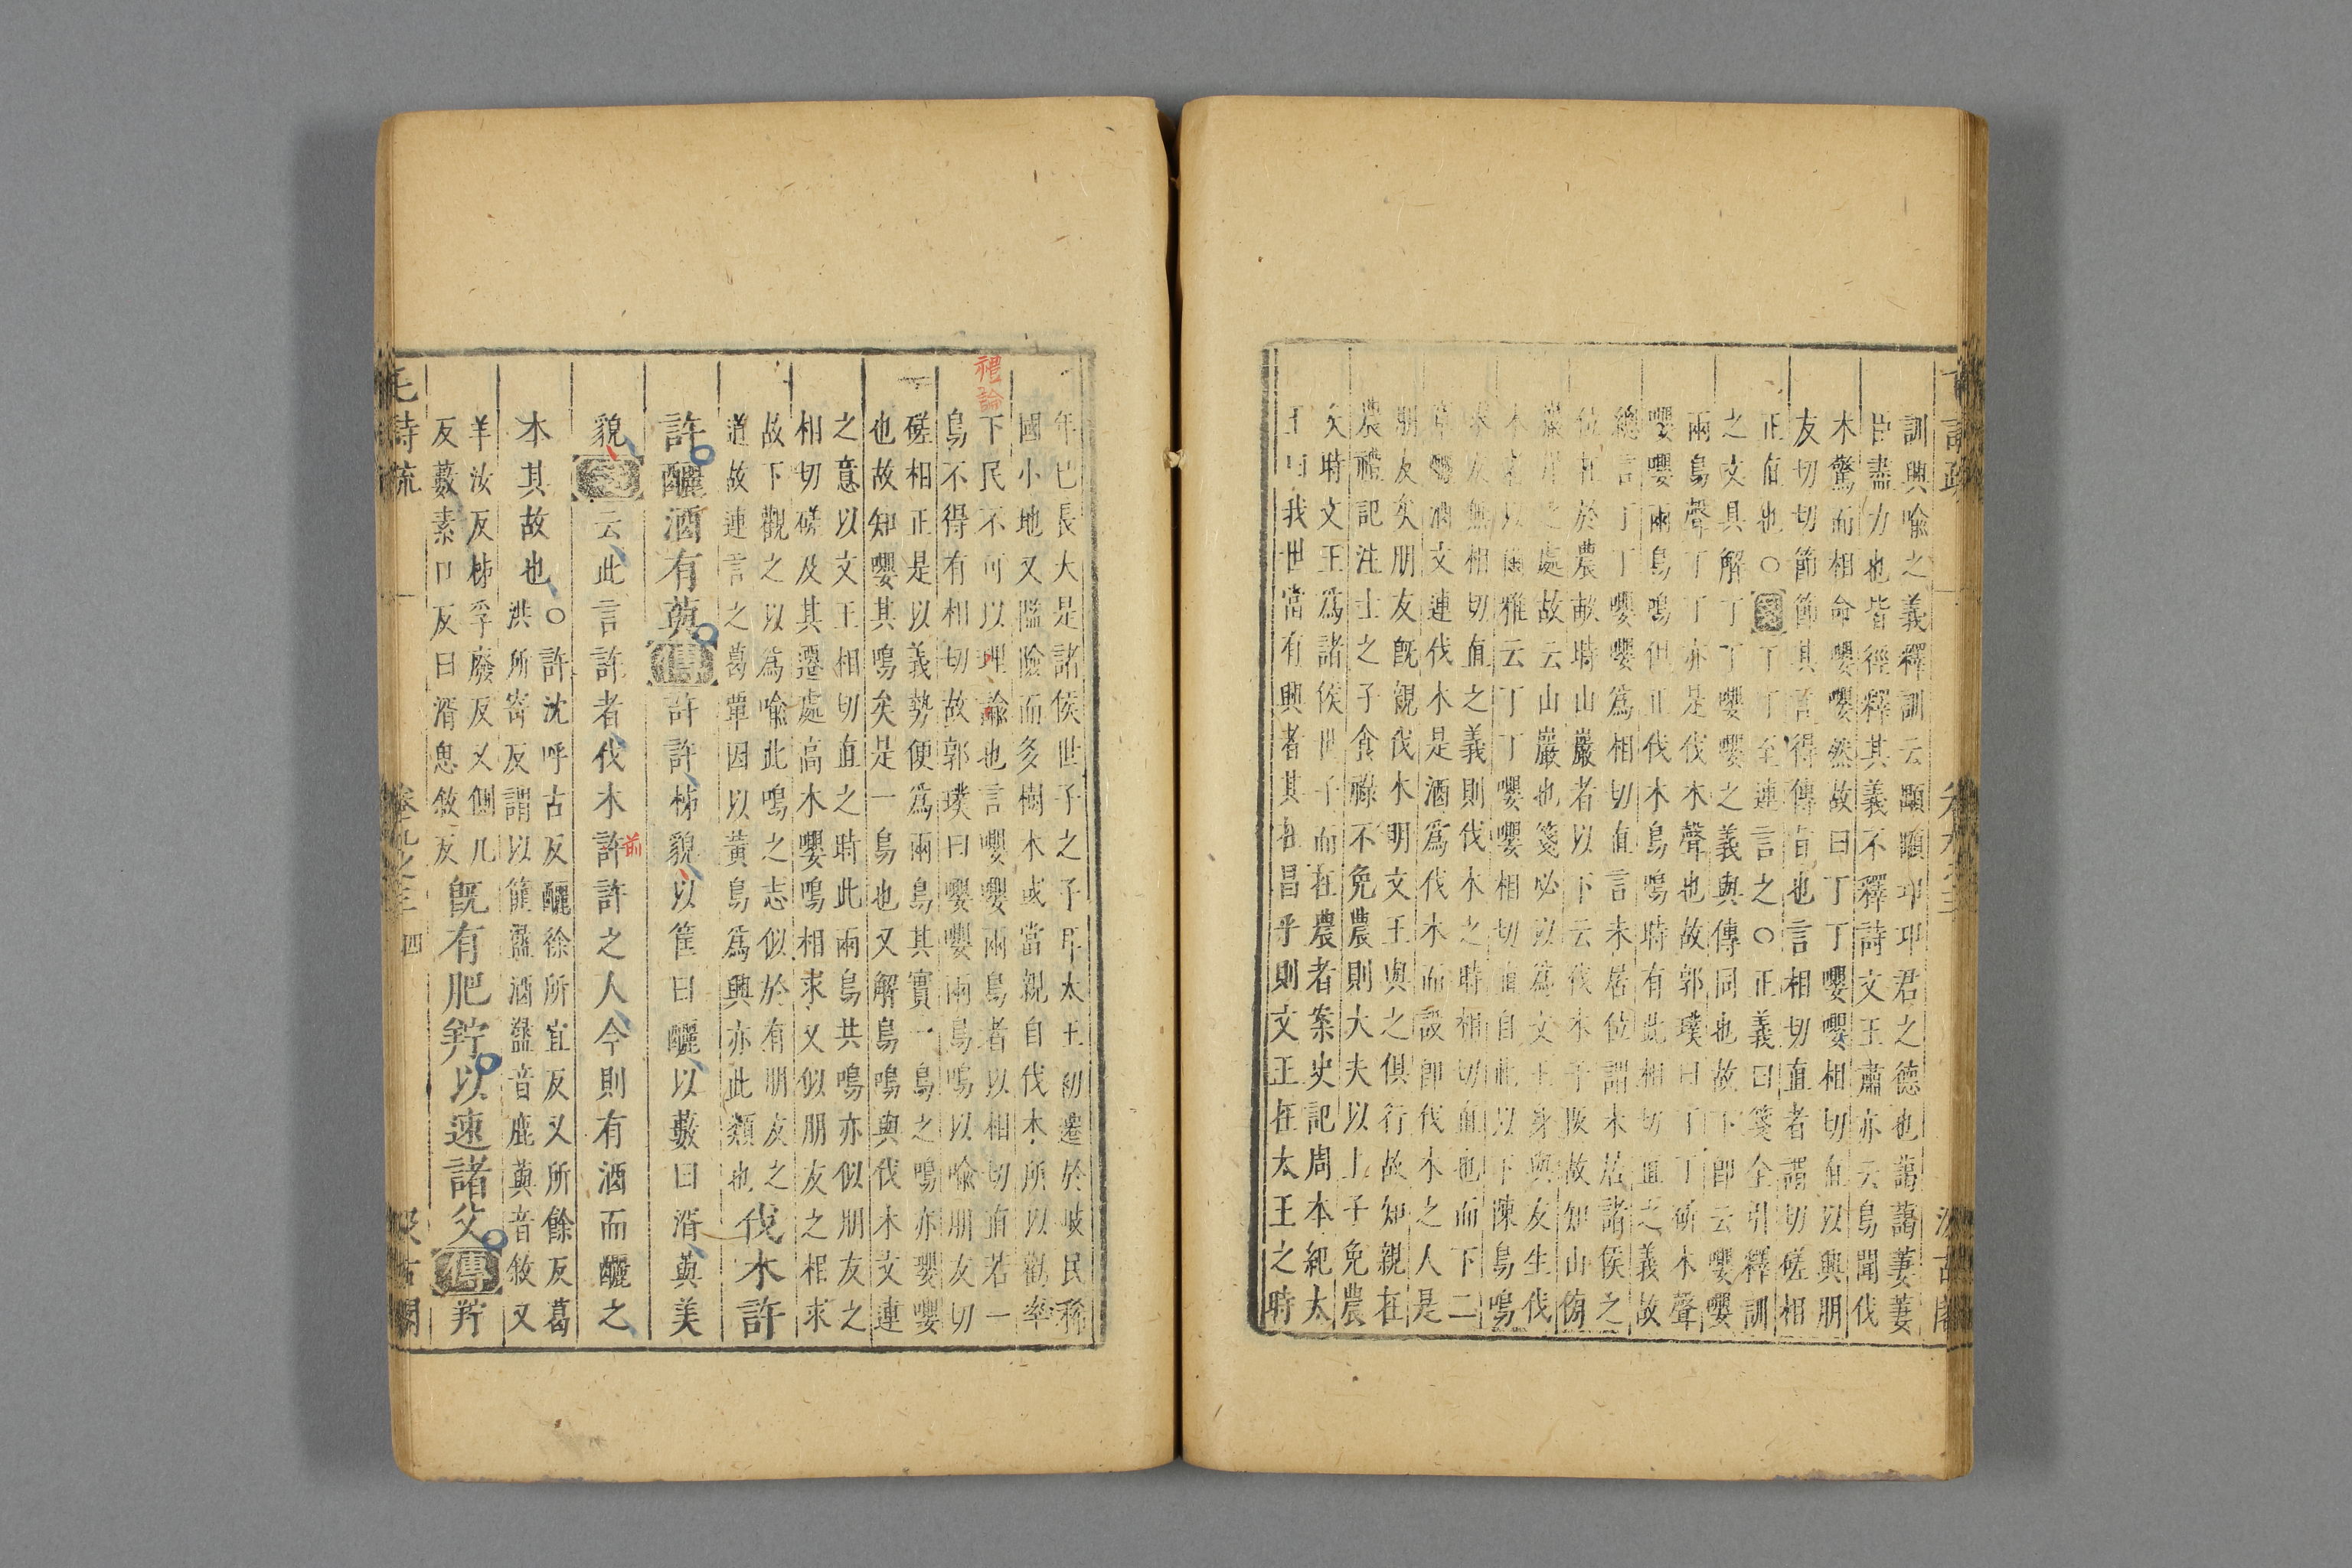 詩疏 卷九之三 汲古閣
訓興喻之義釋訓云顒顒卬卬君之德也藹藹萋萋
臣盡力也皆徑釋其義不釋詩文王肅亦云鳥聞伐
木驚而相命嚶嚶然故曰丁丁嚶嚶相切直以興朋
友切切節節其言得傳旨也言相切直者謂切磋相
正直也○箋丁丁至連言之○正義曰箋全引釋訓
之文具解丁丁嚶嚶之義與傳同也故下即云嚶嚶
兩鳥聲丁丁亦是伐木聲也故郭璞曰丁丁斫木聲
嚶嚶兩鳥鳴但正伐木鳥鳴時有此相切直之義故
總言丁丁嚶嚶為相切直言未居位謂未居諸侯之
位在於農畝時山巖者以下云伐木于阪故知山傍
巖岸之處故云山巖也箋必以為文王身與友生伐
木者以爾雅云丁丁嚶嚶相切直自此以下陳鳥鳴
求友無相切直之義則伐木之時相切直也而下二
章釃酒文連伐木是酒為伐木而設即伐木之人是
朋友矣朋友既親伐木明文王與之俱行故知親在
農禮記注士之子食祿不免農則大夫以上子免農
矣時文王為諸侯世子而在農者案史記周本紀太
王曰我世當有興者其在昌乎則文王在太王之時
禮論
年已長大是諸侯世子之子耳太王初遷於岐民稀
國小地又隘險而多樹木或當親自伐木所以勸率
下民不可以理論也言嚶嚶兩鳥者以相切直若一
鳥不得有相切故郭璞曰嚶嚶兩鳥鳴以喻朋友切
磋相正是以義勢便為兩鳥其實一鳥之鳴亦嚶嚶
也故知嚶其鳴矣是一鳥也又解鳥鳴與伐木文連
之意以文王相切直之時此兩鳥共鳴亦似朋友之
相切磋及其遷處高木嚶鳴相求又似朋友之相求
故下觀之以為喻此鳴之志似於有朋友之
道故連言之葛覃因以黃鳥為興亦此類也 伐木許
許釃酒有藇傳許許柿貌以筐曰釃以藪曰湑藇美
貌箋云此言許者伐木許許之人今則有酒而釃之
前
本其故也○許沈呼古反釃徐所宜反又所餘反葛
洪所寄反謂以筐盪酒盪音鹿藇音敘又
羊汝反柿孚廢反又側几
反藪素口反曰湑息敘反 既有肥羜以速諸父傳羜
毛詩疏 卷九之三 四 汲古閣